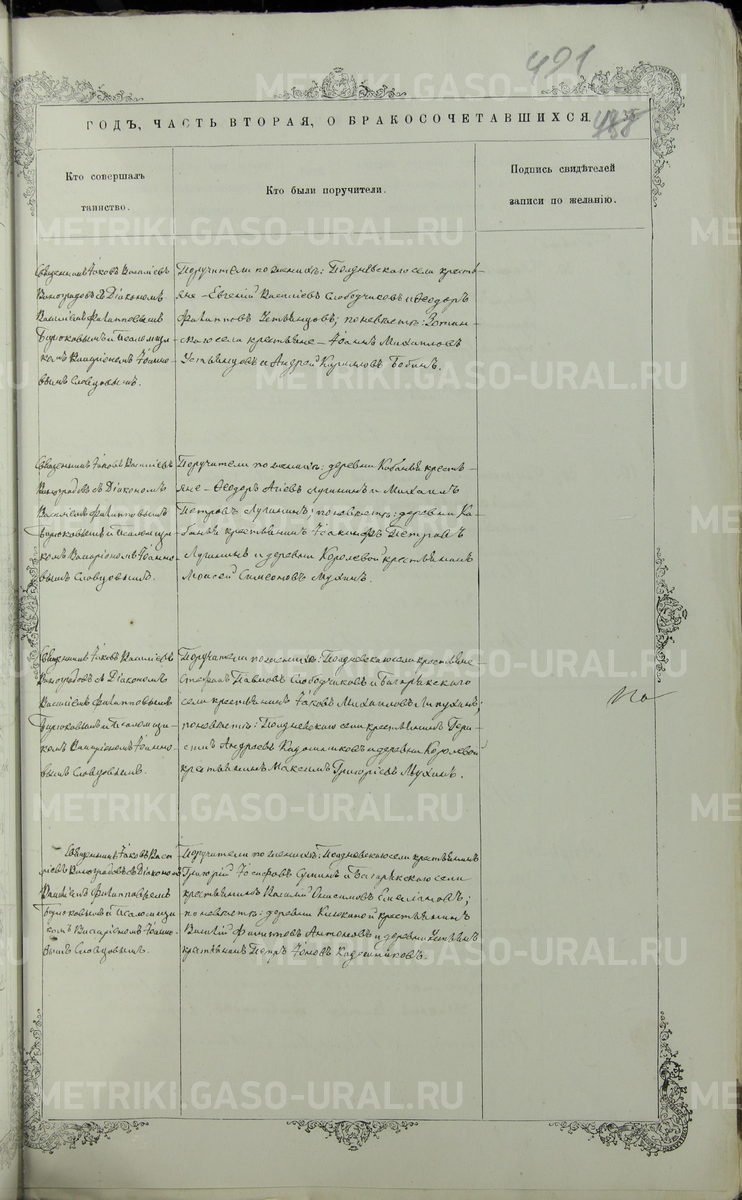 491
488
ГОДЪ, ЧАСТЬ ВТОРАЯ, О БРАКОСОЧЕТАВШИХСЯ.
Кто совершалъ
таинство.
Кто были поручители.
Подпись свидѣтелей
записи по желанію.
Священникъ Іаковъ Василіевъ
Виноградовъ съ Діакономъ
Василіемъ Филипповымъ
Бирюковымъ и Псаломщи-
комъ Виссаріономъ Іоанно-
вымъ Словцовымъ.
Поручители по женихѣ: Полдневскаго села кресть-
яне – Евгеній Василіевъ Слободчиковъ и Ѳеодоръ
Филипповъ Устьянцовъ; по невѣстѣ:
скаго села крестьяне – Іоаннъ Михаиловъ
Устьянцовъ и Андрей Кириловъ Бобинъ.
Священникъ Іаковъ Василіевъ
Виноградовъ съ Діакономъ
Василіемъ Филипповымъ
Бирюковымъ и Псаломщи-
комъ Виссаріономъ Іоанно-
вымъ Словцовымъ.
Поручители по женихѣ: деревни Кабаньи кресть-
яне – Ѳеодоръ Лугининъ и Михаилъ
Петровъ Лугининъ; по невѣстѣ: деревни Ка-
баньи крестьянинъ Іоакимъ Петровъ
Лугининъ и деревни Королевой крестьянинъ
Моисей Симеоновъ Мухинъ.
Священникъ Іаковъ Василіевъ
Виноградовъ съ Діакономъ
Василіемъ Филипповымъ
Бирюковымъ и Псаломщи-
комъ Виссаріономъ Іоанно-
вымъ Словцовымъ.
Поручители по женихѣ: Полдневскаго села крестьяне
Стефанъ Павловъ Слободчиковъ и Багарякскаго
села крестьянинъ Іаковъ Михаиловъ Липухинъ;
по невѣстѣ: Полдневскаго села крестьянинъ
Андреевъ Кадошниковъ и деревни Королевой
крестьянинъ Максимъ Григоріевъ Мухинъ.
Священникъ Іаковъ Васи-
ліевъ Виноградовъ съ Діакономъ
Василіемъ Филипповымъ
Бирюковымъ и Псаломщи-
комъ Виссаріономъ Іоанно-
вымъ Словцовымъ.
Поручители по женихѣ: Полдневскаго села крестьянинъ
Григорій Іосифовъ и Багарякскаго села
крестьянинъ Василій Емеліановъ;
по невѣстѣ: деревни крестьянинъ
Василій Филиповъ Антоновъ и деревни
крестьянинъ Петръ Іоновъ Кадошниковъ.
METRIKI.GASO-URAL.RU